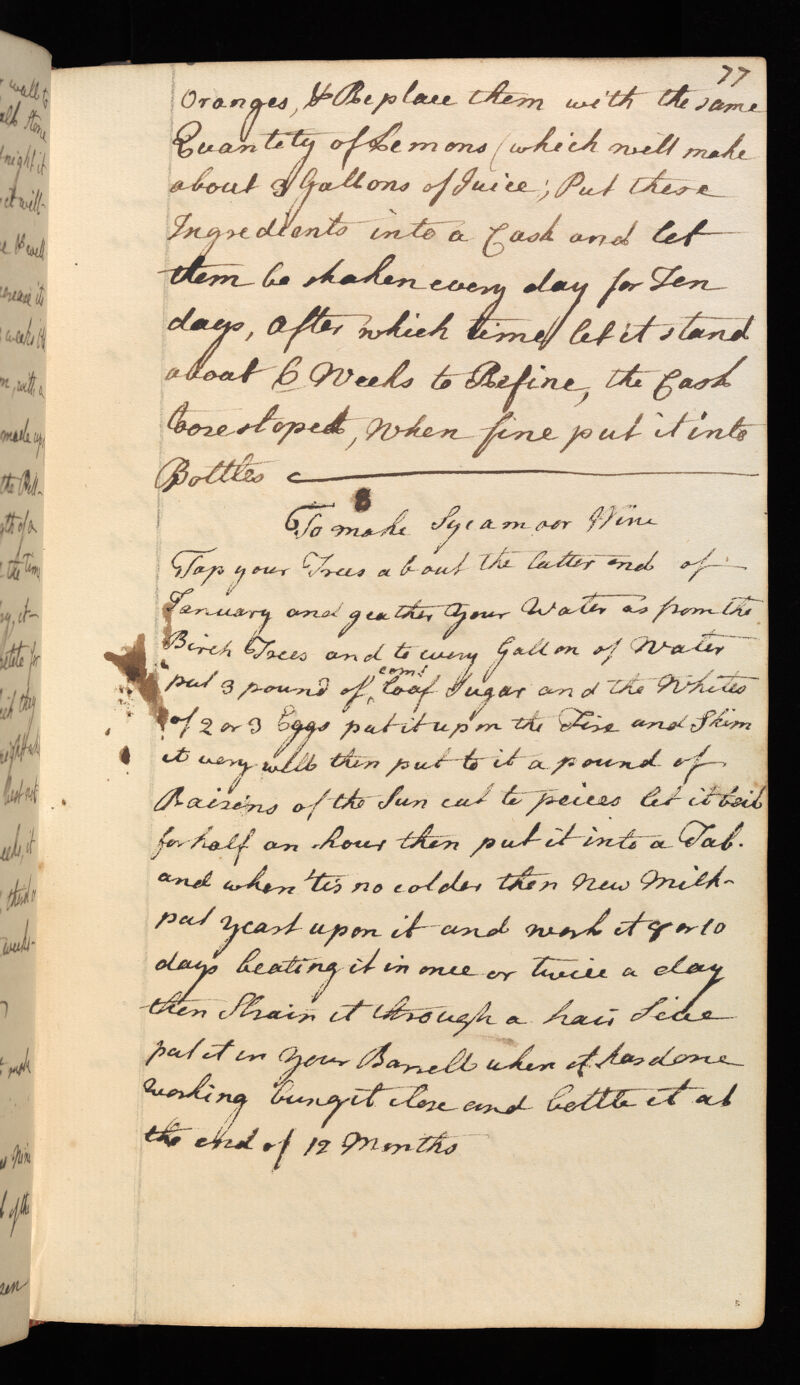 77
Oranges, & Replace them with the same
Quantity of Lemons (which will make
about 3 Gallons of Juice; Put these
Ingredients into a Cask and let
them be shaken every day for Ten
days, after which time let it stand
about 6 Weeks to Refine, the Cask
close stoped, when fine put it into
Bottles
8
To make Sycamoor Wine
Tap your Trees about the latter end of
January and geather your Water as from the
Birch Trees and to every Gallon of Water
put 3 pound of loaf Sugar and the Whites
of 2 or 3 Eggs put it upon the Fire and Skim
it very well then put to it a pound of
Raisins of the Sun cut to peices let it boil
for half an hour then put it into a Tub.
and when 'tis no colder then New Milk
put yeast upon it and work it 8 or 10
days beating it in once or twice a day
then Strain it through a hair Sive
put it in your Barrell when it has done
working bung it close and bottle it at
the end of 12 Months